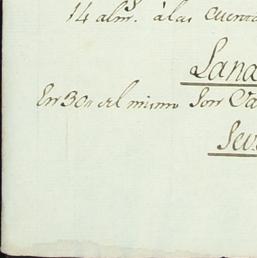 14 alm.s à las cuent
Lana
En 30 del mismo Son Ca
Sev